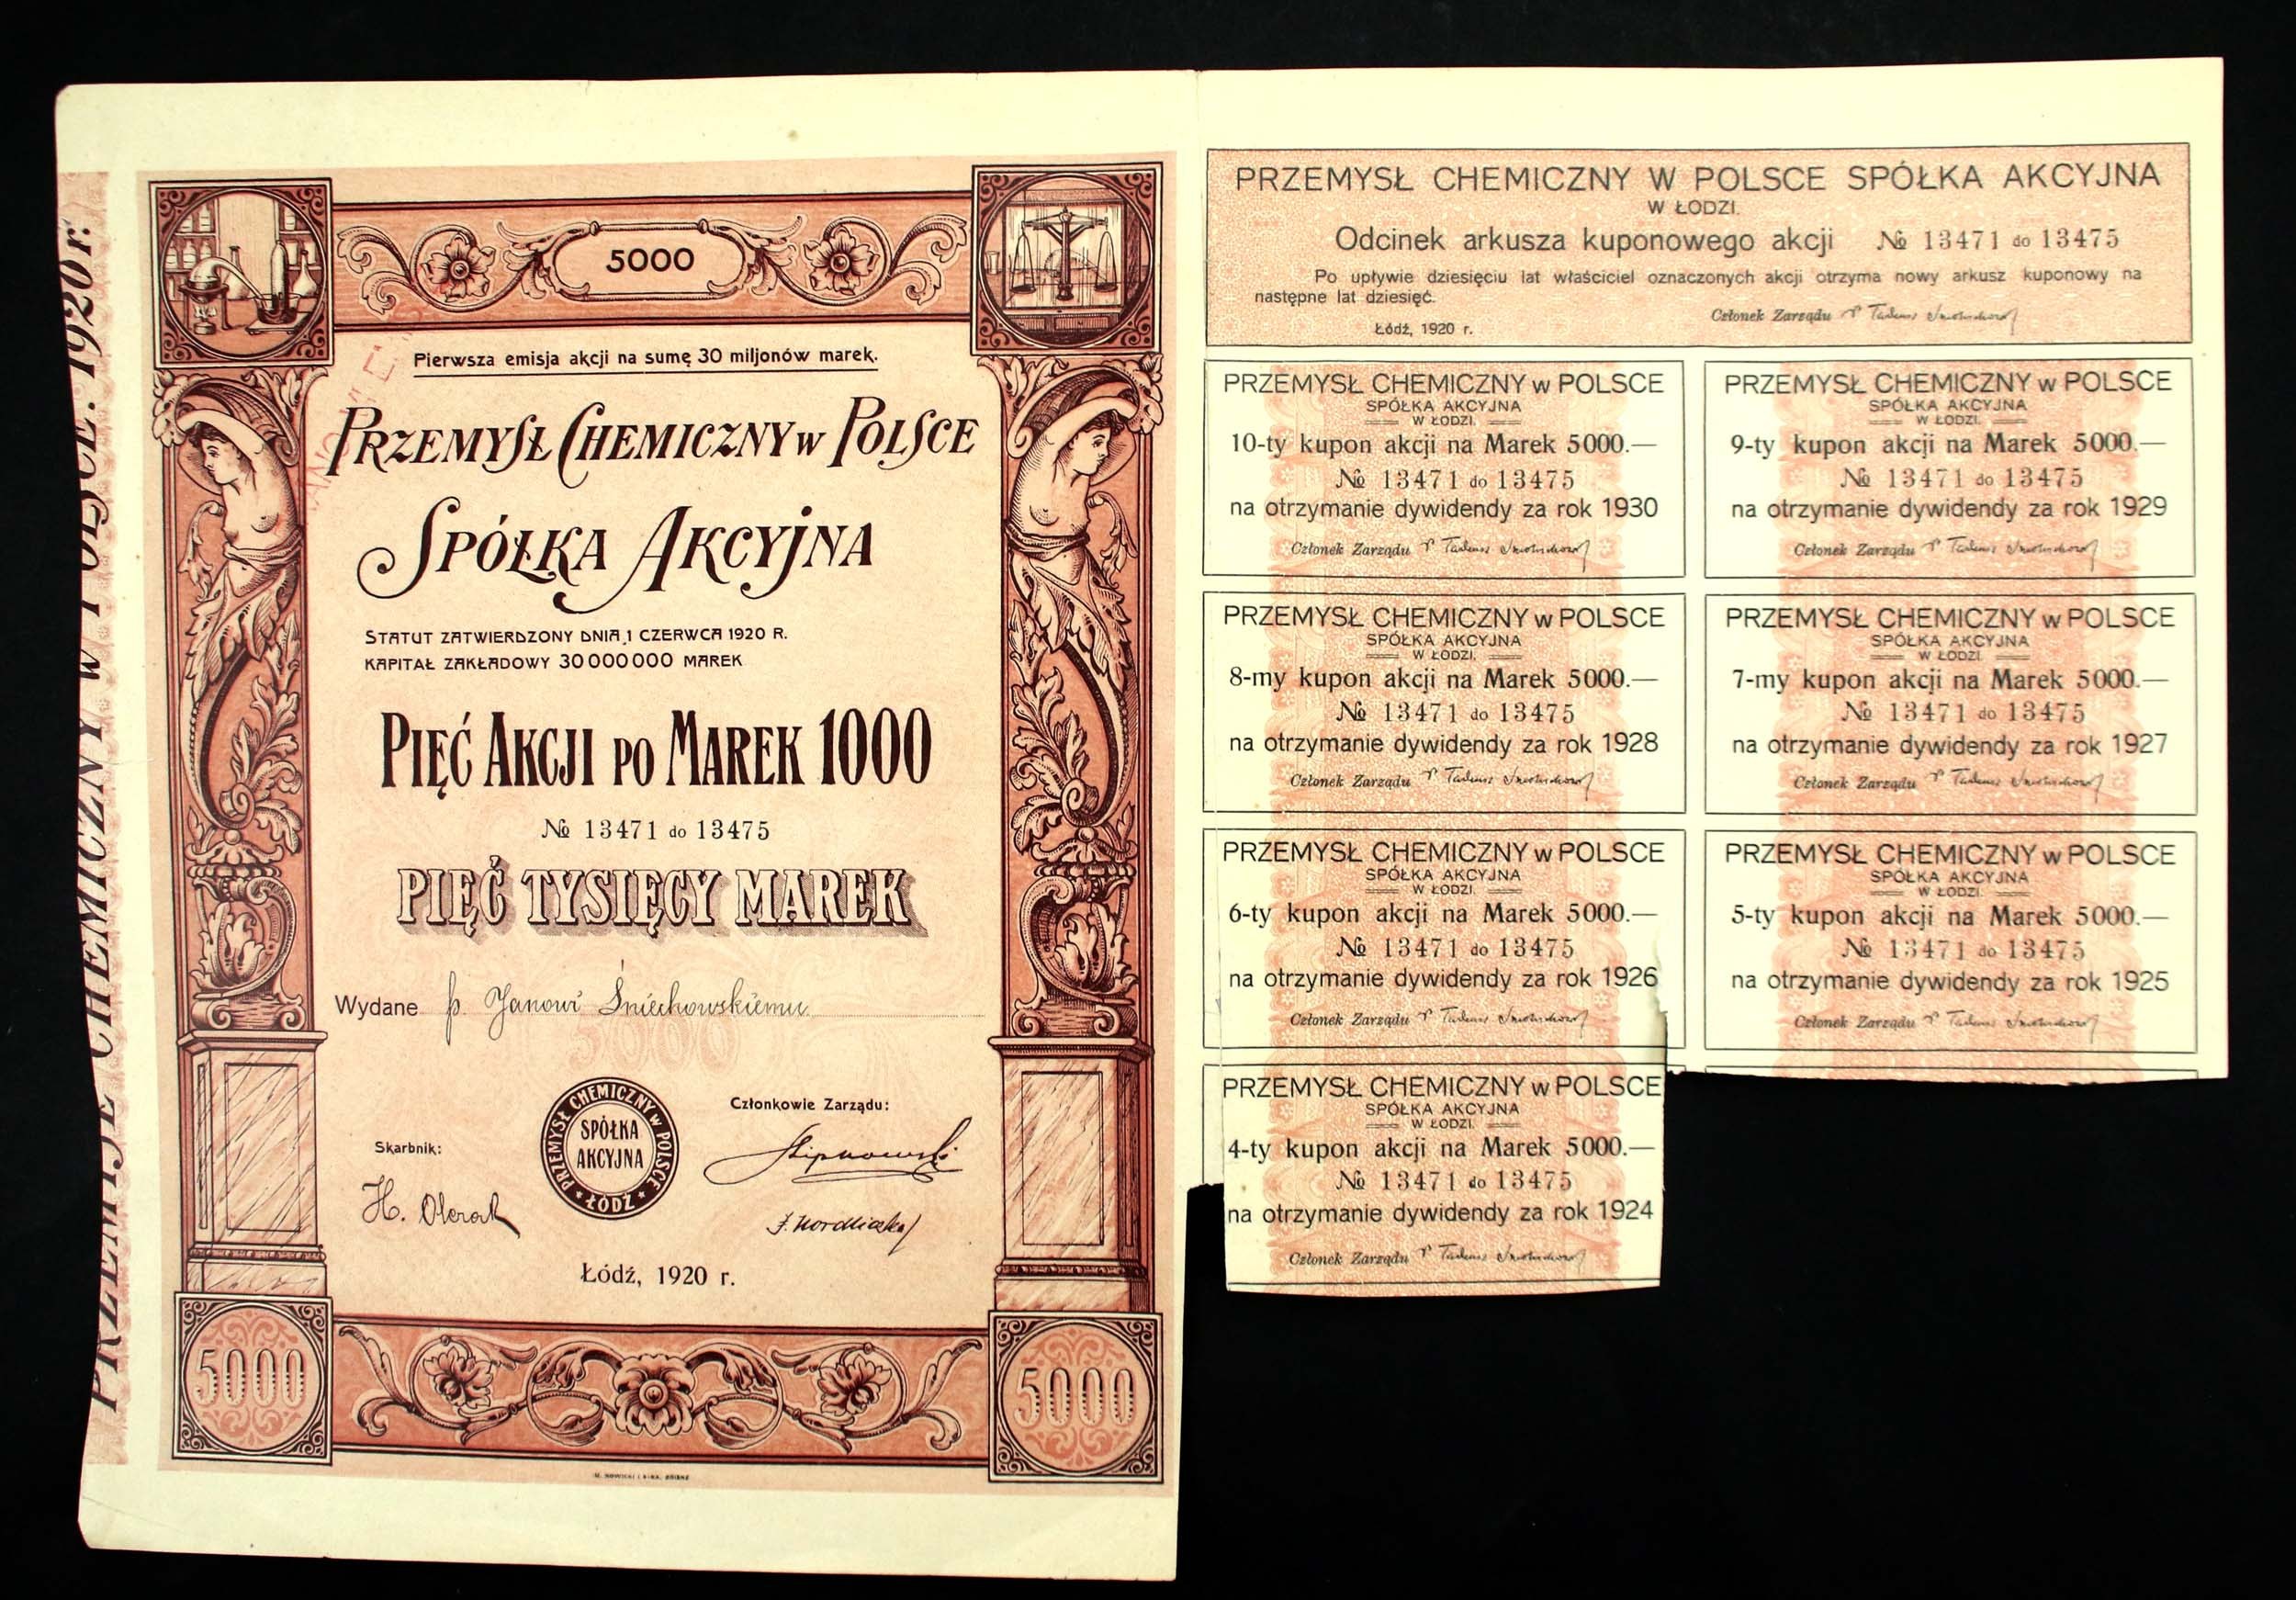 PRZEMYSŁ CHEMICZNY W POLSCE. 1920 r.
5000
Pierwsza emisja akcji na sumę 30 miljonów marek.
PRZEMYSŁ CHEMICZNY w POLSCE
SPÓŁKA AKCYJNA
STATUT ZATWIERDZONY DNIA 1 CZERWCA 1920 R.
KAPITAŁ ZAKŁADOWY 30 000 000 MAREK
PIĘĆ AKCJI PO MAREK 1000
№ 13471 do 13475
PIĘĆ TYSIĘCY MAREK
Wydane p. Janowi Śniechowskiemu
5000
Skarbnik:
H.
PRZEMYSŁ CHEMICZNY w POLSCE
SPÓŁKA
AKCYJNA
ŁÓDŹ
Członkowie Zarządu:
Łódź, 1920 r.
5000
5000
PRZEMYSŁ CHEMICZNY W POLSCE SPÓŁKA AKCYJNA
W ŁODZI.
Odcinek arkusza kuponowego akcji № 13471 do 13475
Po upływie dziesięciu lat właściciel oznaczonych akcji otrzyma nowy arkusz kuponowy na
następne lat dziesięć.
Członek Zarządu Tadeusz
Łódź, 1920 r.
PRZEMYSŁ CHEMICZNY w POLSCE
SPÓŁKA AKCYJNA
W ŁODZI.
10-ty kupon akcji na Marek 5000.—
№ 13471 do 13475
na otrzymanie dywidendy za rok 1930
Członek Zarządu Tadeusz
PRZEMYSŁ CHEMICZNY w POLSCE
SPÓŁKA AKCYJNA
W ŁODZI.
9-ty kupon akcji na Marek 5000.—
№ 13471 do 13475
na otrzymanie dywidendy za rok 1929
Członek Zarządu Tadeusz
PRZEMYSŁ CHEMICZNY w POLSCE
SPÓŁKA AKCYJNA
W ŁODZI.
8-my kupon akcji na Marek 5000.—
№ 13471 do 13475
na otrzymanie dywidendy za rok 1928
Członek Zarządu Tadeusz
PRZEMYSŁ CHEMICZNY w POLSCE
SPÓŁKA AKCYJNA
W ŁODZI.
7-my kupon akcji na Marek 5000.—
№ 13471 do 13475
na otrzymanie dywidendy za rok 1927
Członek Zarządu Tadeusz
PRZEMYSŁ CHEMICZNY w POLSCE
SPÓŁKA AKCYJNA
W ŁODZI.
6-ty kupon akcji na Marek 5000.—
№ 13471 do 13475
na otrzymanie dywidendy za rok 1926
Członek Zarządu Tadeusz
PRZEMYSŁ CHEMICZNY w POLSCE
SPÓŁKA AKCYJNA
W ŁODZI.
5-ty kupon akcji na Marek 5000.—
№ 13471 do 13475
na otrzymanie dywidendy za rok 1925
Członek Zarządu Tadeusz
PRZEMYSŁ CHEMICZNY w POLSCE
SPÓŁKA AKCYJNA
W ŁODZI.
4-ty kupon akcji na Marek 5000.—
№ 13471 do 13475
na otrzymanie dywidendy za rok 1924
Członek Zarządu Tadeusz